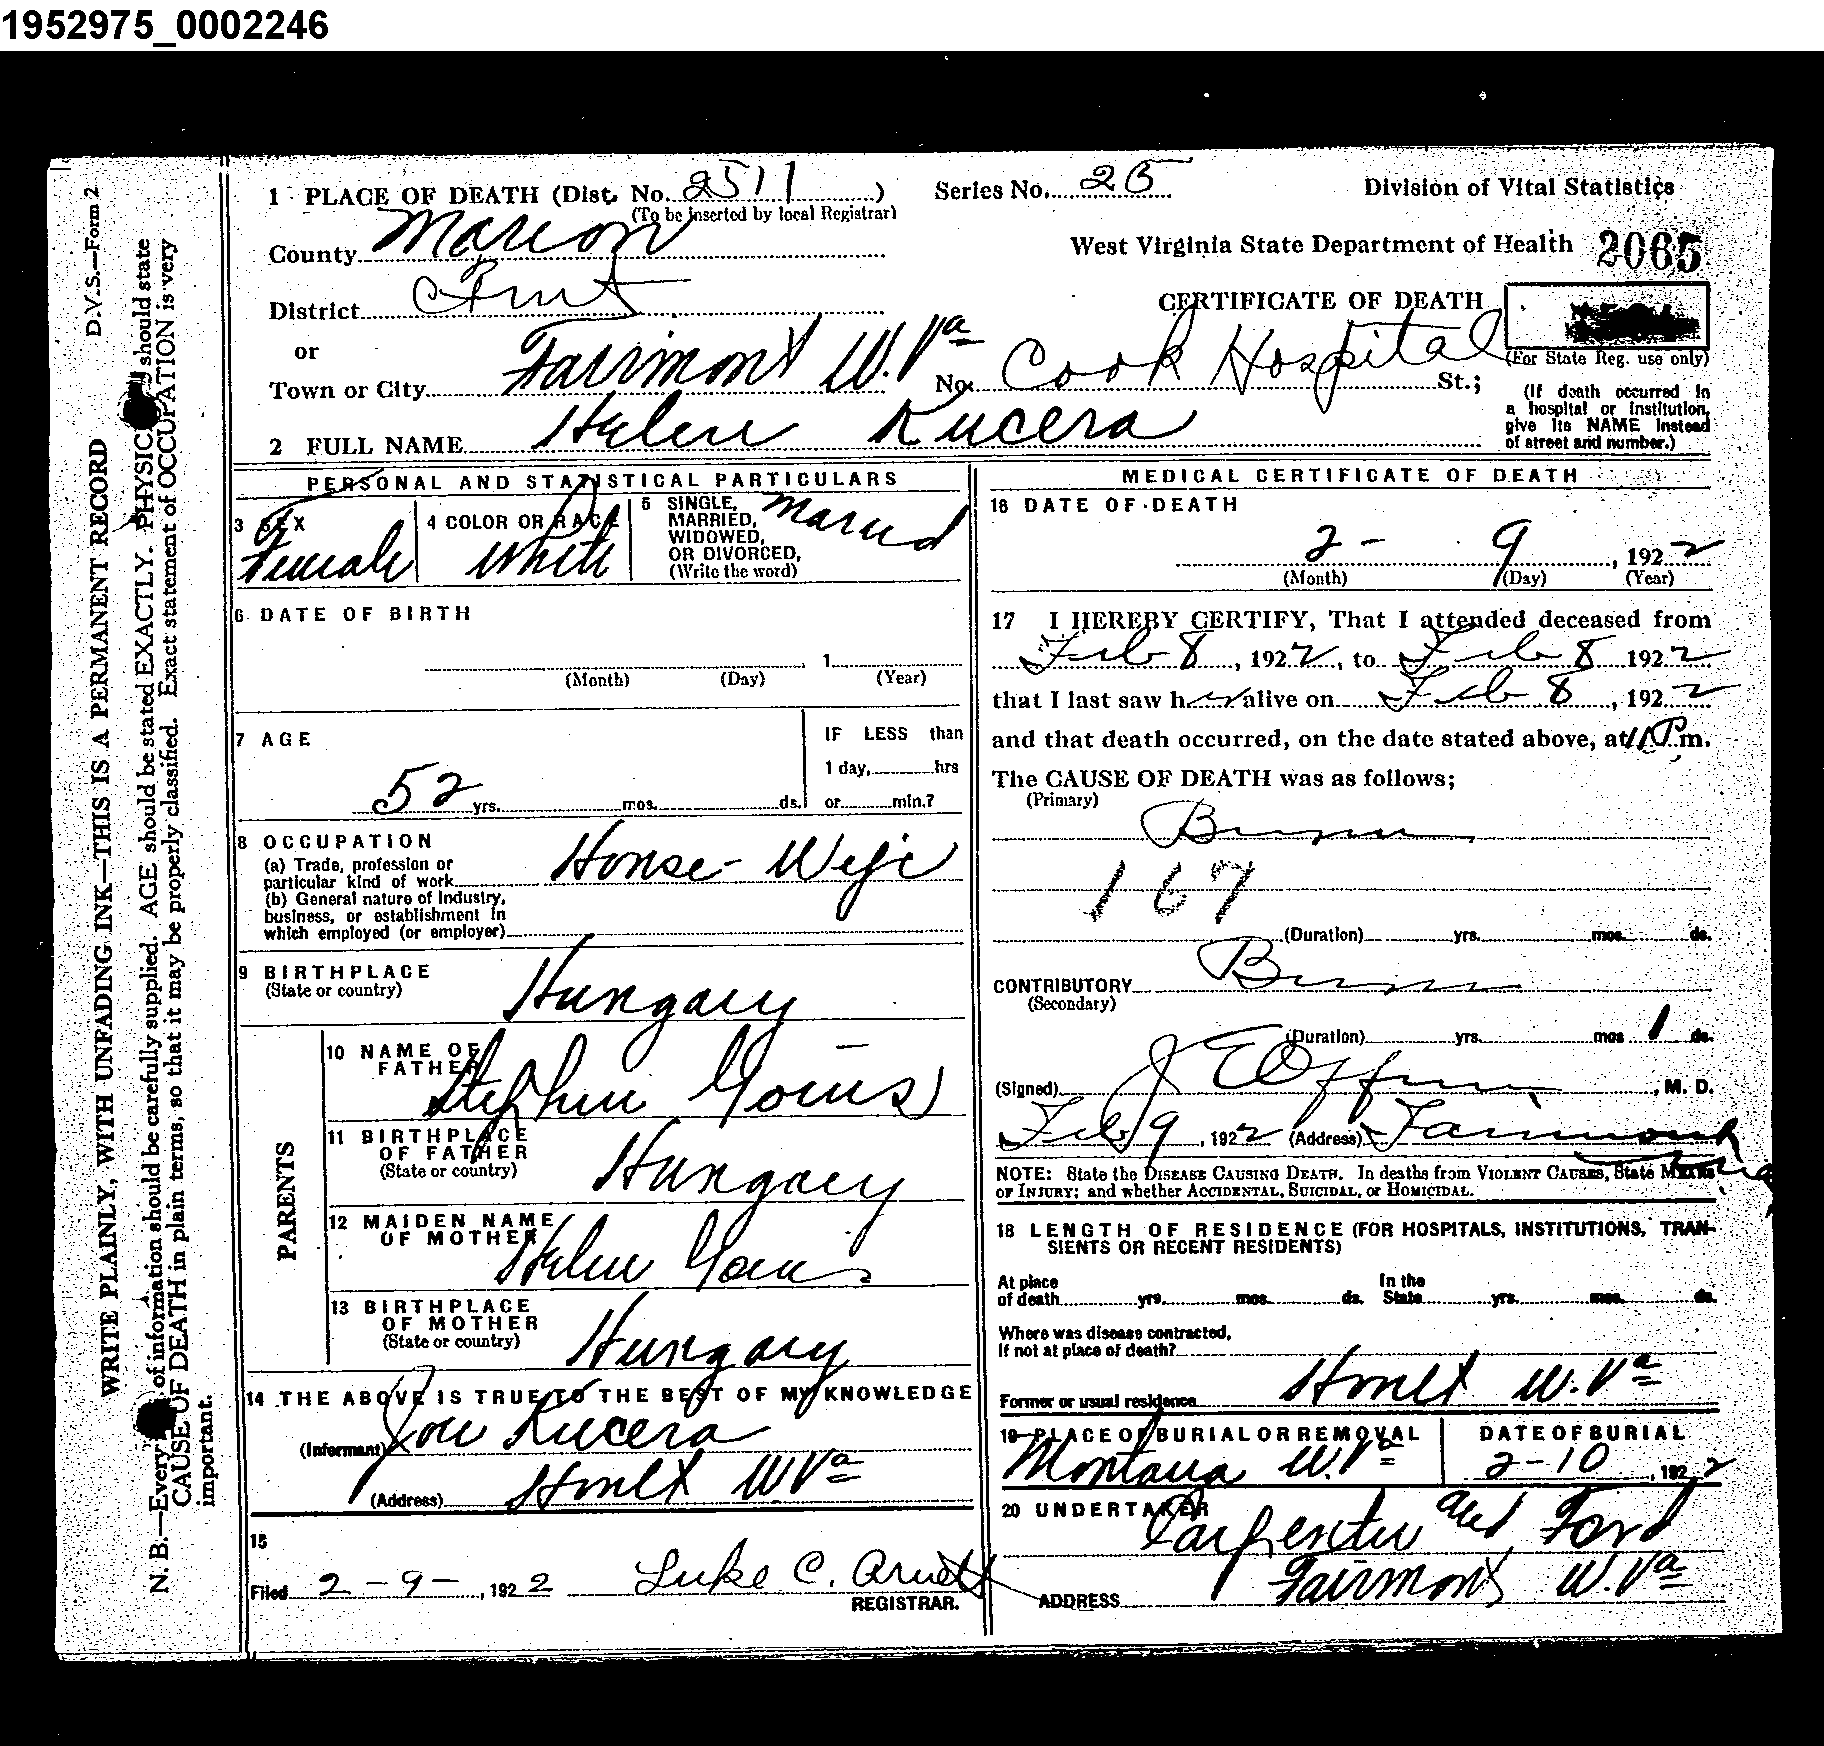 1952975_0002246
D.V.S.—Form 2
WRITE PLAINLY, WITH UNFADING INK—THIS IS A PERMANENT RECORD
N. B.—Every of information should be carefully supplied. AGE should be stated EXACTLY. PHYSIC should state
CAUSE OF DEATH in plain terms, so that it may be properly classified. Exact statement of OCCUPATION is very
important.
1 PLACE OF DEATH (Dist. No. 2511 )
(To be inserted by local Registrar)
Series No. 25
Division of Vital Statistics
County Marion
West Virginia State Department of Health 2065
District
CERTIFICATE OF DEATH
or
(For State Reg. use only)
Town or City Fairmont W.Va
No. Cook Hospital St.;
(If death occurred in
a hospital or institution,
give its NAME instead
of street and number.)
2 FULL NAME Helen Kucera
PERSONAL AND STATISTICAL PARTICULARS
3 SEX
Female
4 COLOR OR RACE
White
5 SINGLE,
MARRIED,
WIDOWED,
OR DIVORCED,
(Write the word)
Married
6 DATE OF BIRTH
1
(Month) (Day) (Year)
7 AGE
52 yrs. mos. ds.
IF LESS than
1 day, hrs
or min.?
8 OCCUPATION
(a) Trade, profession or
particular kind of work House-Wife
(b) General nature of industry,
business, or establishment in
which employed (or employer)
9 BIRTHPLACE
(State or country)
Hungary
PARENTS
10 NAME OF
FATHER
Stephen
11 BIRTHPLACE
OF FATHER
(State or country)
Hungary
12 MAIDEN NAME
OF MOTHER
Helen
13 BIRTHPLACE
OF MOTHER
(State or country)
Hungary
14 THE ABOVE IS TRUE TO THE BEST OF MY KNOWLEDGE
(Informant) Joe Kucera
(Address) Hoult W.Va
15
Filed 2-9-, 1922 Luke C. Arnett
REGISTRAR.
MEDICAL CERTIFICATE OF DEATH
16 DATE OF DEATH
2- 9, 1922
(Month) (Day) (Year)
17 I HEREBY CERTIFY, That I attended deceased from
Feb 8, 1922, to Feb 8 1922
that I last saw her alive on Feb 8, 1922
and that death occurred, on the date stated above, at 11 P.m.
The CAUSE OF DEATH was as follows;
(Primary)
Burns
167
(Duration) yrs. mos. ds.
CONTRIBUTORY Burns
(Secondary)
(Duration) yrs. mos 1 ds.
(Signed) , M. D.
Feb 9, 1922 (Address) Fairmont
NOTE: State the DISEASE CAUSING DEATH. In deaths from VIOLENT CAUSES, State MEANS
OF INJURY; and whether ACCIDENTAL, SUICIDAL, or HOMICIDAL.
18 LENGTH OF RESIDENCE (FOR HOSPITALS, INSTITUTIONS, TRAN-
SIENTS OR RECENT RESIDENTS)
At place
of death yrs. mos. ds.
In the
State yrs. mos. ds.
Where was disease contracted,
If not at place of death?
Former or usual residence Hoult W.Va
19 PLACE OF BURIAL OR REMOVAL
Montana W.Va
DATE OF BURIAL
2-10, 1922
20 UNDERTAKER
Carpenter and Ford
ADDRESS Fairmont W.Va